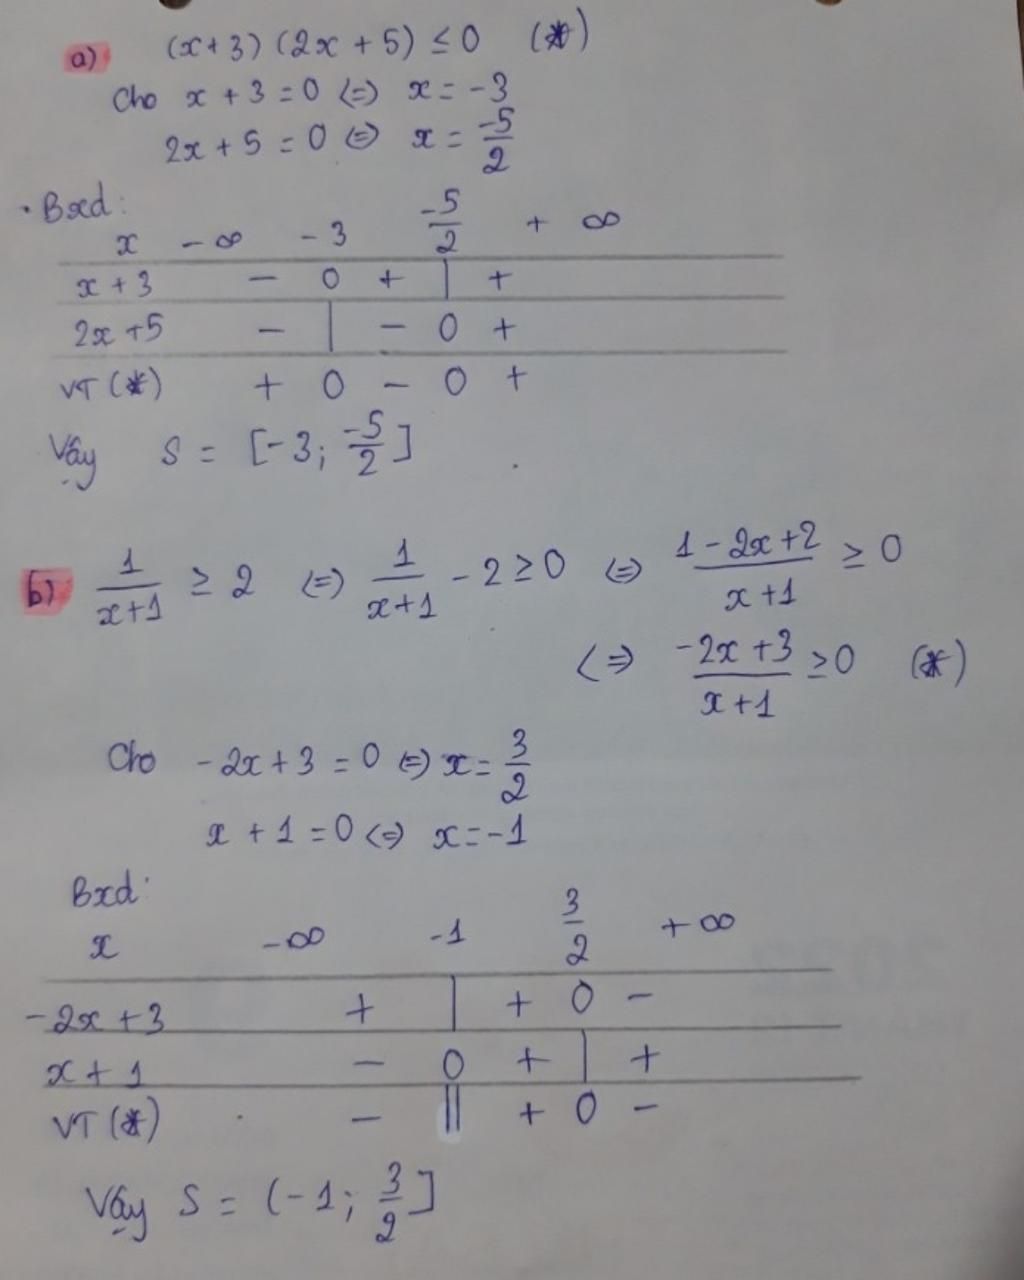 a) (x+3)(2x+5) ≤ 0 (*)
Cho x + 3 = 0 (=) x = -3
2x + 5 = 0 (=) x = -5/2
• Bxd:
x -∞ -3 -5/2 +∞
x + 3 - 0 + | +
2x +5 - | - 0 +
VT (*) + 0 - 0 +
Vậy S = [-3; -5/2]
b) 1/(x+1) ≥ 2 (=) 1/(x+1) - 2 ≥ 0 (=) (1 - 2x + 2)/(x+1) ≥ 0
<=> (-2x + 3)/(x+1) ≥ 0 (*)
Cho -2x + 3 = 0 (=) x = 3/2
x + 1 = 0 <=> x = -1
Bxd:
x -∞ -1 3/2 +∞
-2x + 3 + | + 0 -
x + 1 - 0 + | +
VT (*) - || + 0 -
Vậy S = (-1; 3/2]